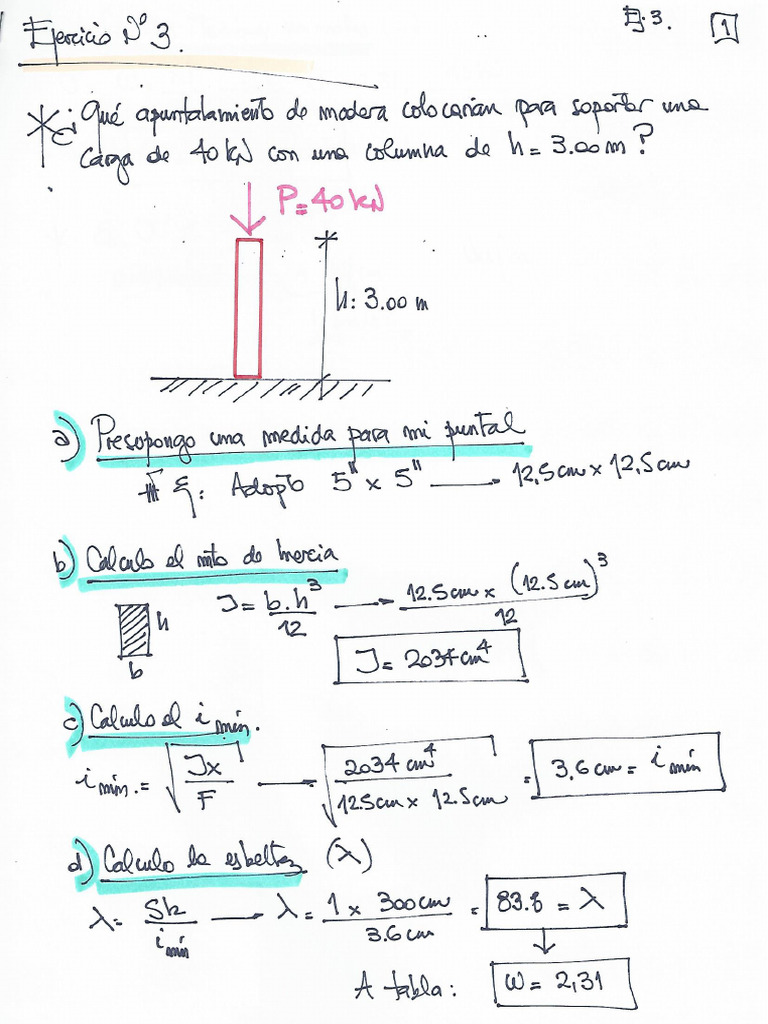 Ejercicio Nº 3.
Ej. 3.
1
¿Qué apuntalamiento de madera colocarían para soportar una
carga de 40 kN con una columna de h = 3.00 m?
P = 40 kN
h: 3.00 m
a) Presupongo una medida para mi puntal
Ej: Adopto 5" x 5" → 12,5 cm x 12,5 cm
b) Calculo el mto de Inercia
h
b
J = b.h³/12 → 12.5 cm x (12.5 cm)³/12
J = 2034 cm⁴
c) Calculo el i mín.
i mín. = √(Jx/F) → √(2034 cm⁴/12.5 cm x 12.5 cm) = 3.6 cm = i mín
d) Calculo la esbeltez (λ)
λ = Sk/i mín → λ = 1 x 300 cm/3.6 cm = 83.8 = λ
A tabla: ω = 2,31